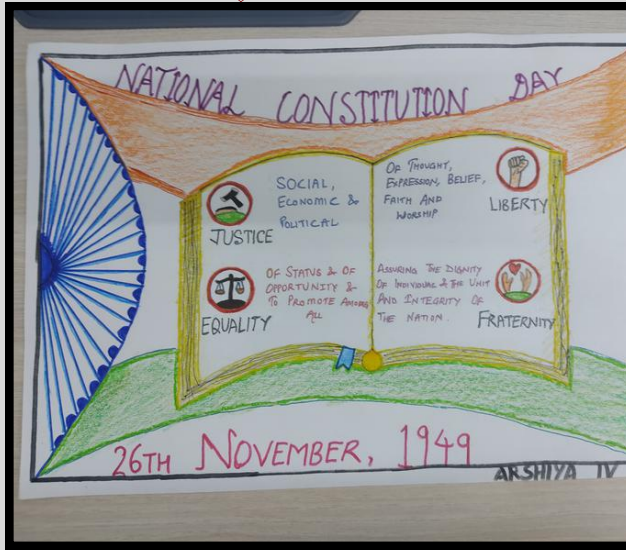 NATIONAL CONSTITUTION DAY
SOCIAL,
ECONOMIC &
POLITICAL
JUSTICE
OF STATUS & OF
OPPORTUNITY &
TO PROMOTE AMONG
ALL
EQUALITY
OF THOUGHT,
EXPRESSION, BELIEF,
FAITH AND
WORSHIP
LIBERTY
ASSURING THE DIGNITY
OF INDIVIDUAL & THE UNIT
AND INTEGRITY OF
THE NATION.
FRATERNITY
26TH NOVEMBER, 1949
ARSHIYA IV